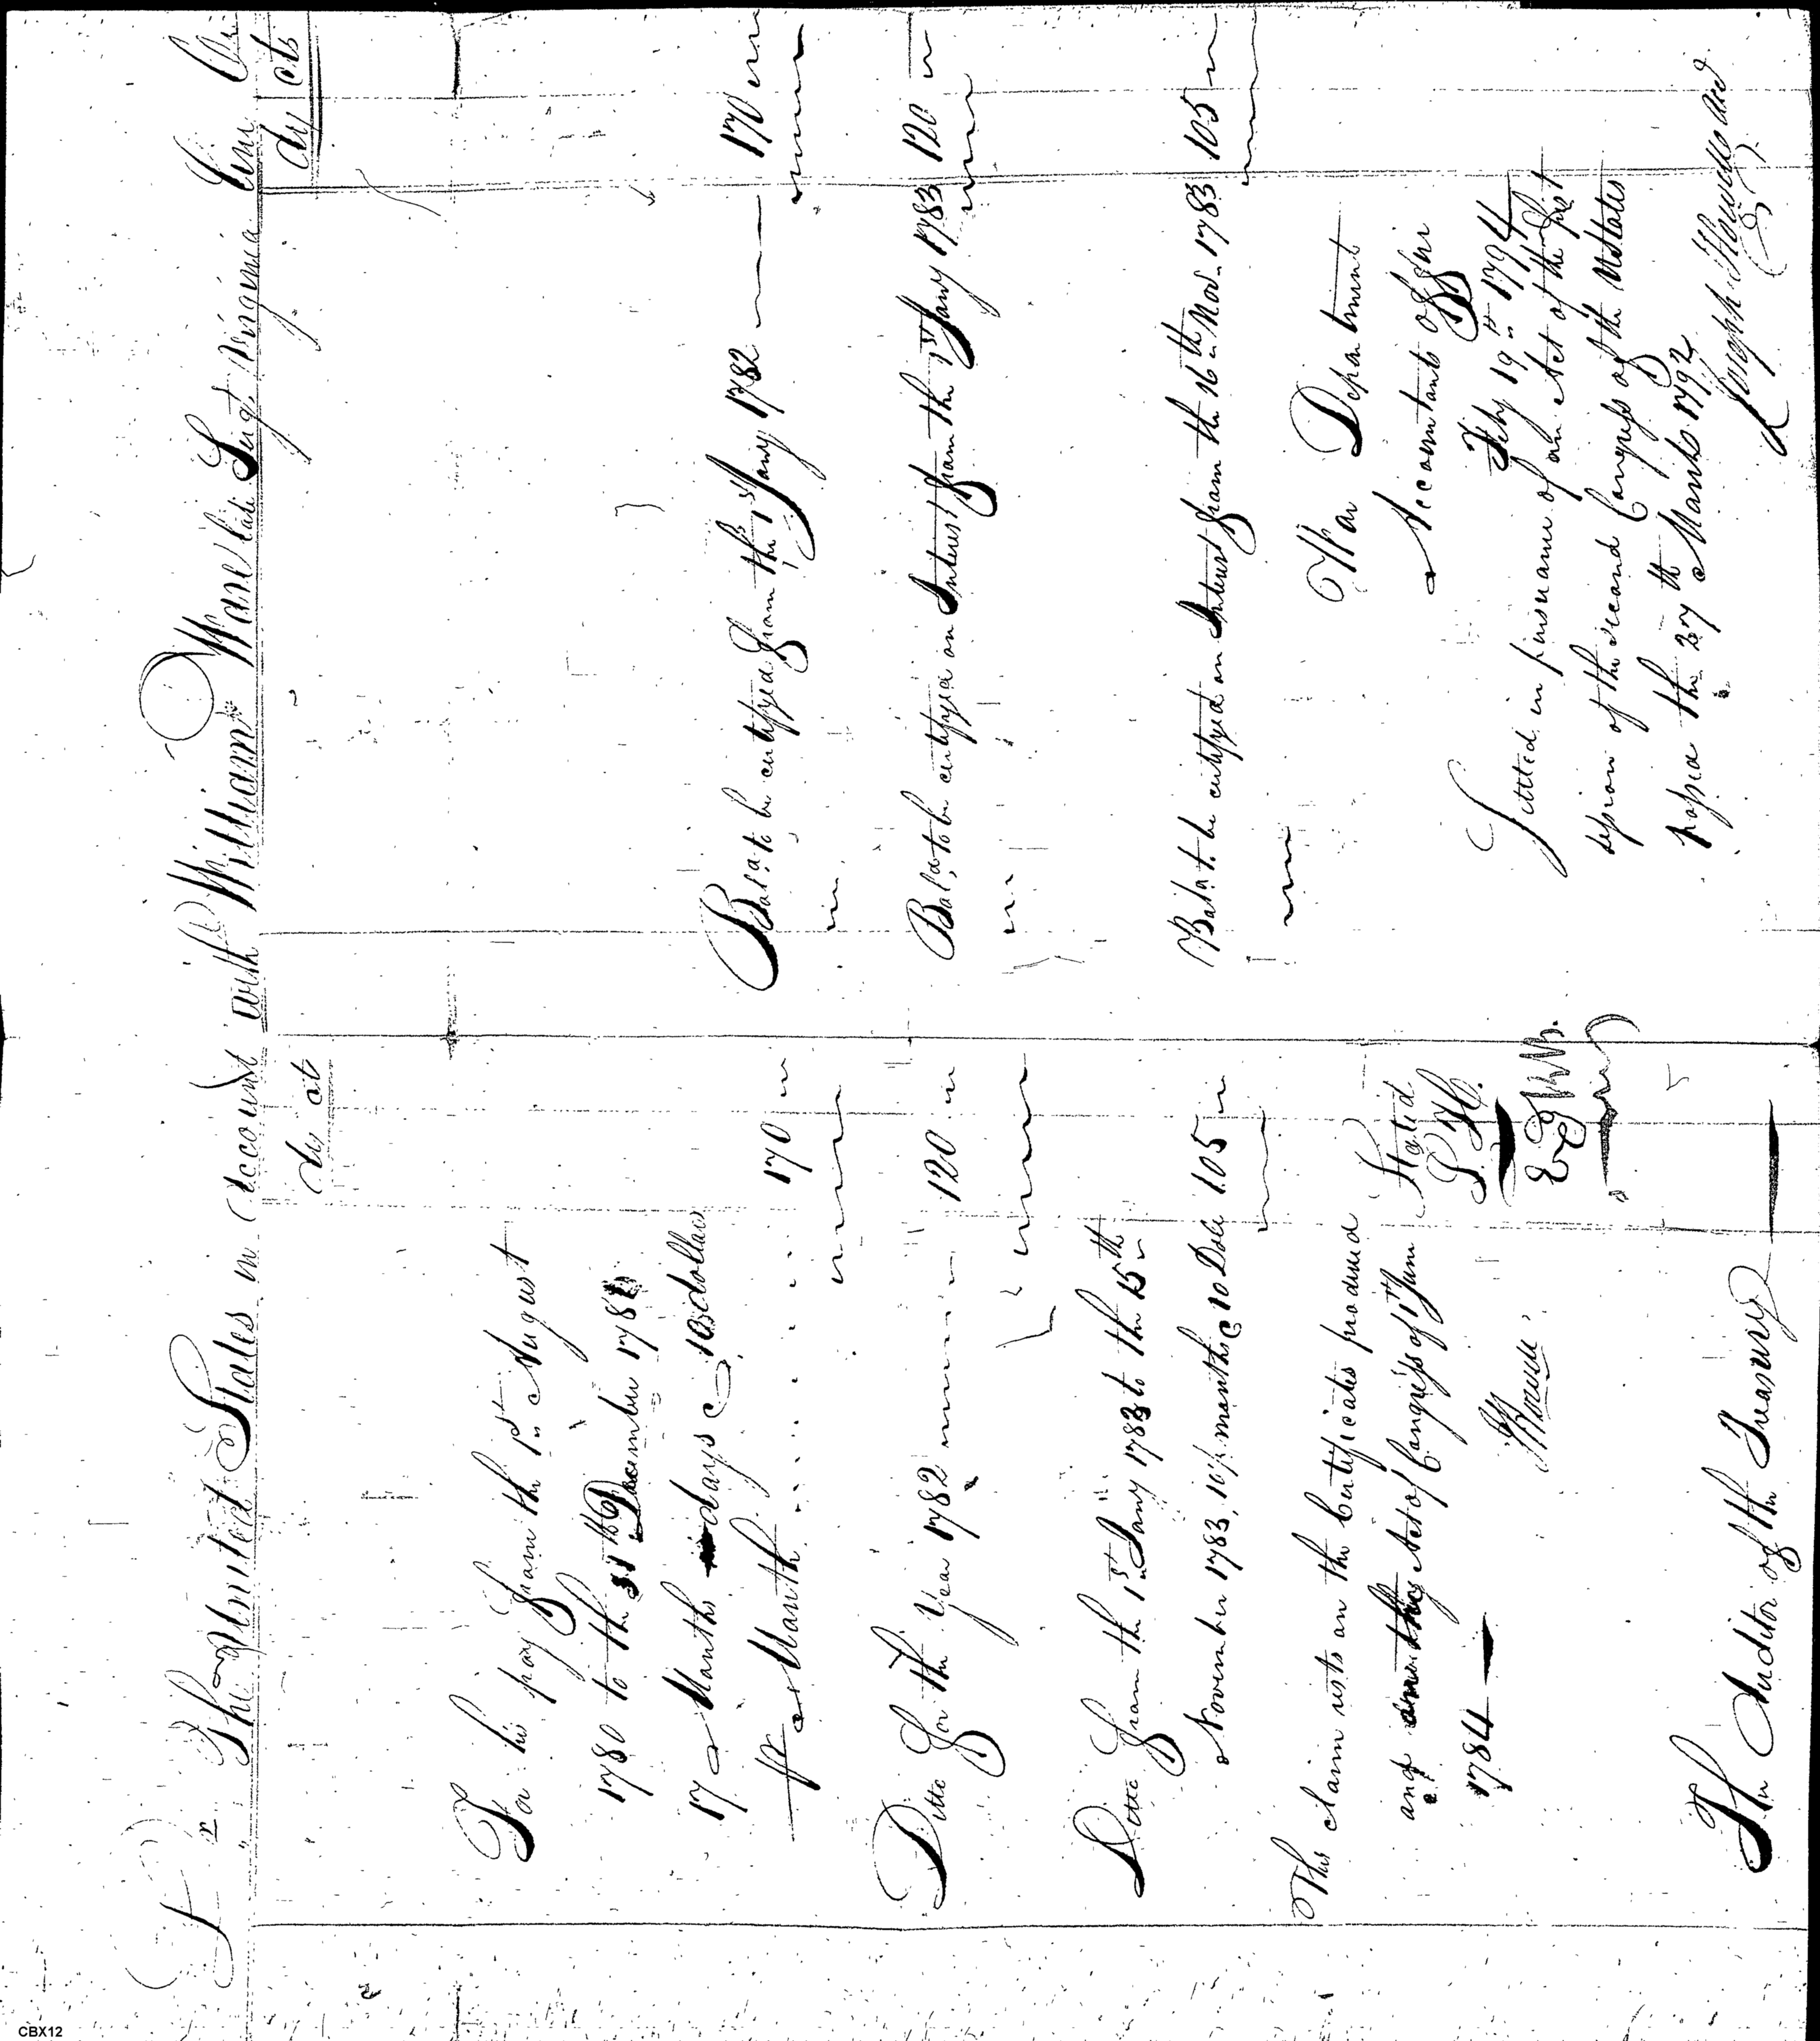 Dr The United States in Account with William Ware late Sergt. Virginia Line Cr
ds cts
For his pay from the 1st August
1780 to the 31st December 1781
17 Months days @ 10 dollars
pr Month 170
Ditto for the Year 1782 120
Ditto from the 1st Jany 1783 to the 15th
November 1783, 10½ months @ 10 Dolls 105
This claim rests on the Certificates produced
and Act of Congress of 1st June
1784
Howell
Stated
P. H.
The Auditor of the Treasury
ds cts
Bala. to be certifyed from the 1st Jany 1782 170
Bala. to be certifyed on Interest from the 1st Jany 1783 120
Bala. to be certifyed on Interest from the 16th Nov. 1783 105
War Department
Accountants office
Feby 19th 1794
Settled in pursuance of an Act of the first
session of the second Congress of the UStates
passed the 27th March 1792
Joseph Howell
CBX12